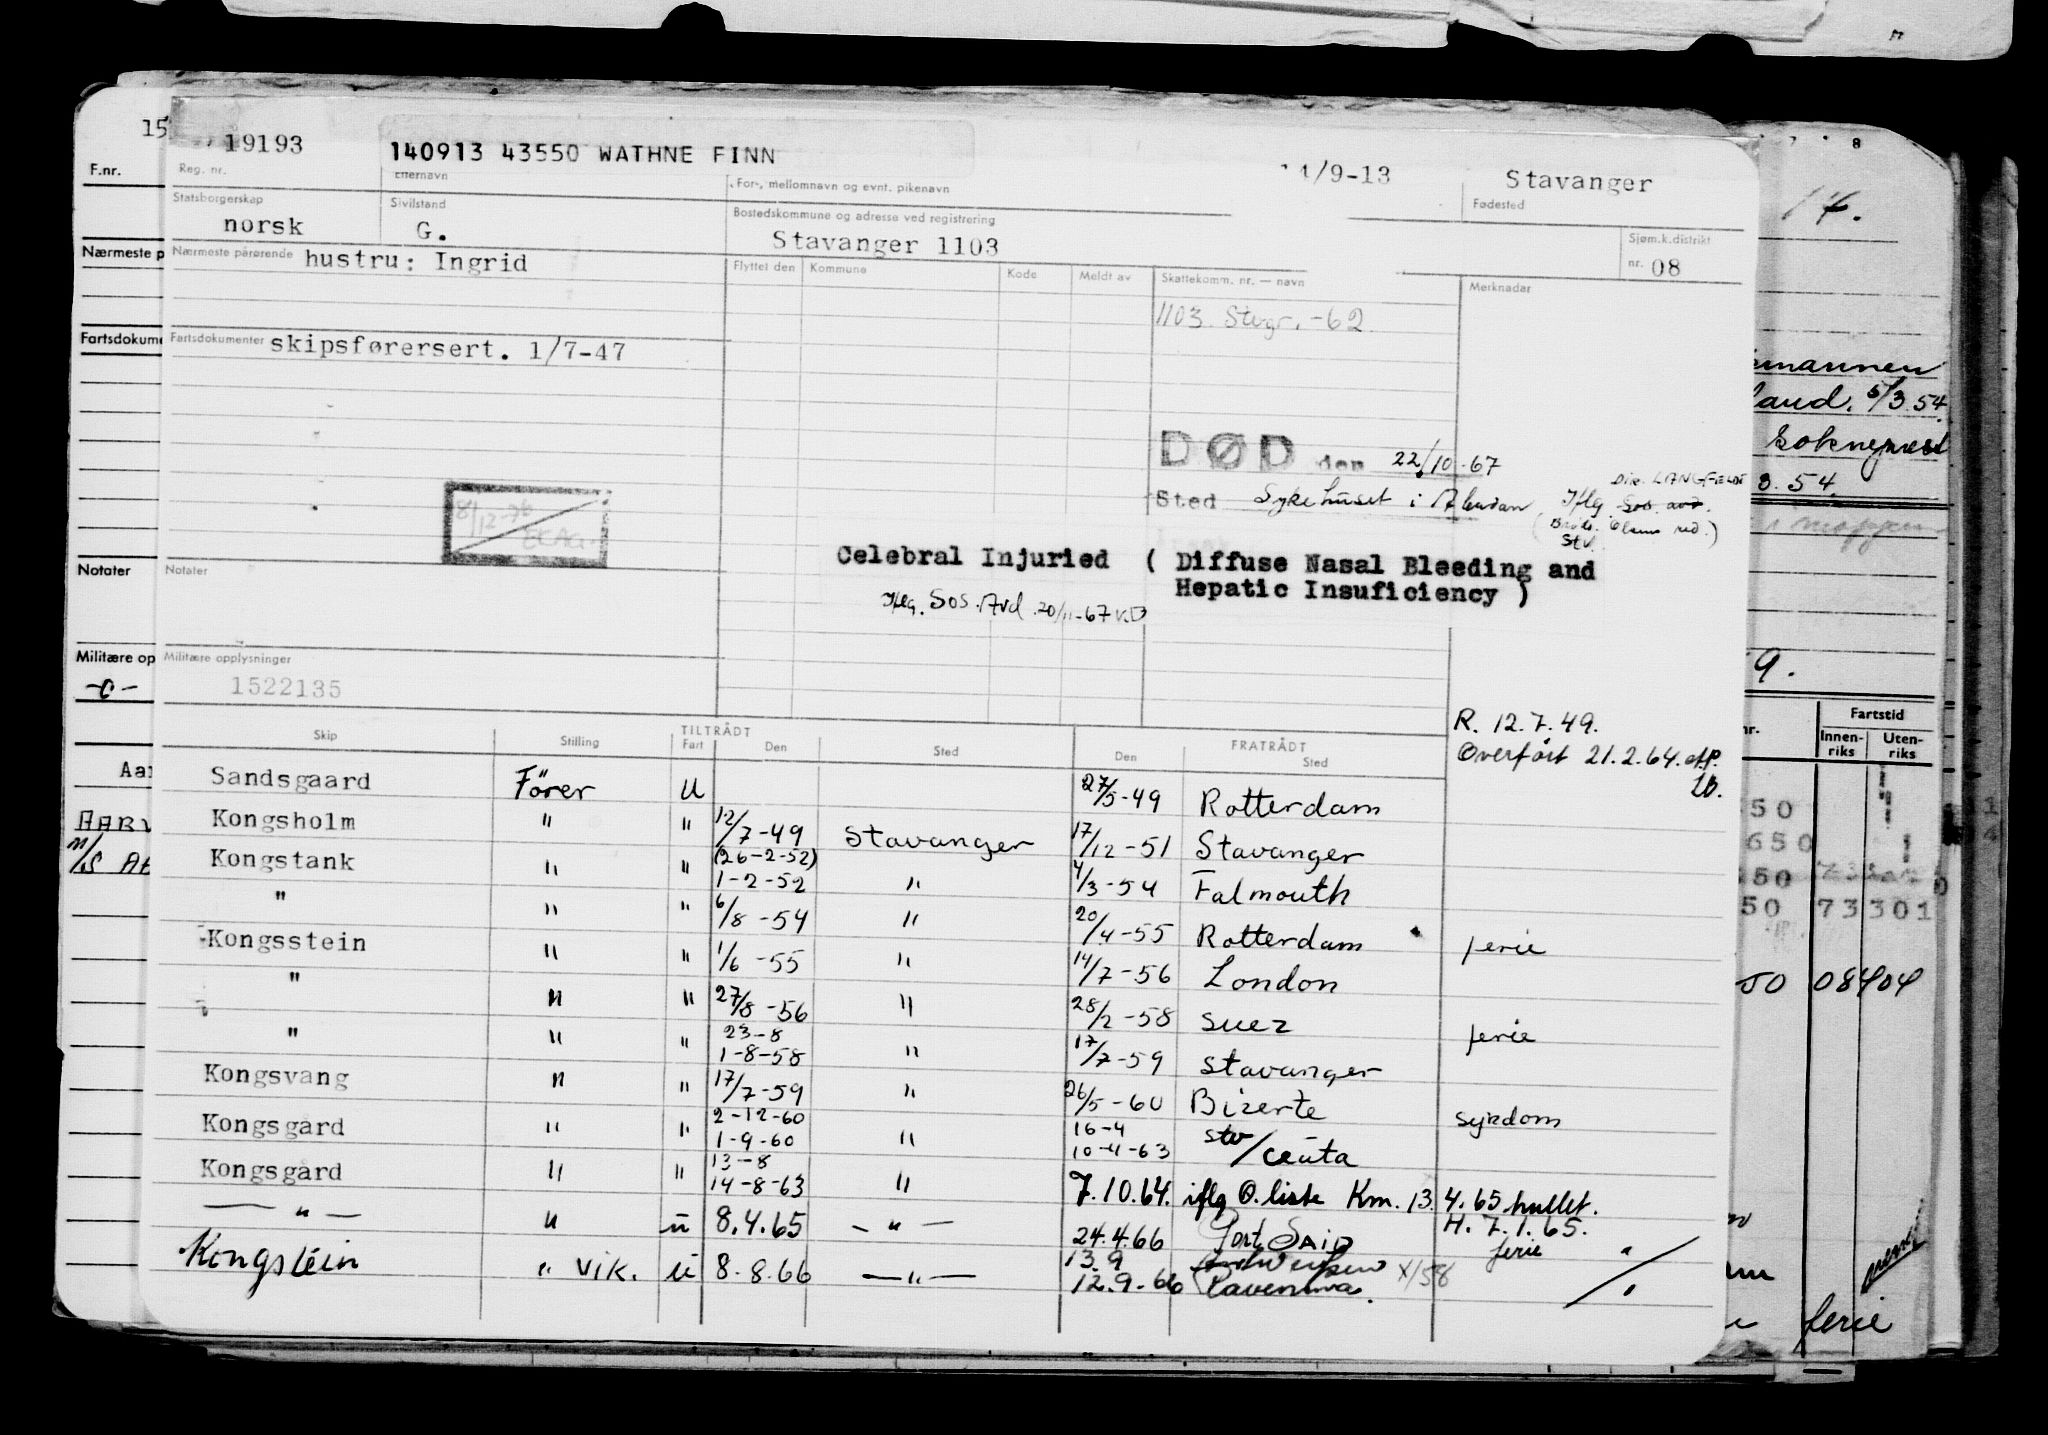 19193
140913 43550 WATHNE FINN
14/9-13
Stavanger
F.nr.
Reg. nr.
Etternavn
For-, mellomnavn og evnt. pikenavn
Fødested
Statsborgerskap
norsk
Sivilstand
G.
Bostedskommune og adresse ved registrering
Stavanger 1103
Sjøm.k.distrikt
nr. 08
Nærmeste p
Nærmeste pårørende hustru: Ingrid
Flyttet den Kommune Kode Meldt av Skattekomm. nr. — navn Merknader
1103 Stvgr. -62
Fartsdokume
Fartsdokumenter skipsførersert. 1/7-47
DØD den 22/10-67
Sted Sykehuset i Abadan, Iflg. Sos. avd.
Dir. LANGFELDT
Stv.
8/12-76
Celebral Injuried ( Diffuse Nasal Bleeding and
Hepatic Insuficiency )
Iflg. Sos. Avd. 20/11-67 V.D
Notater
Notater
Militære op
Militære opplysninger
-c-
1522135
R. 12.7.49.
Overført 21.2.64.
Skip Stilling TILTRÅDT Fart Den Sted FRATRÅDT Den Sted
Sandsgaard Fører U 27/5-49 Rotterdam
Kongsholm " " 12/7-49 Stavanger 17/12-51 Stavanger
Kongstank " " (26-2-52) 1-2-52 " 4/3-54 Falmouth
" " " 6/8-54 " 20/4-55 Rotterdam ferie
Kongsstein " " 1/6-55 " 14/7-56 London
" " " 27/8-56 " 28/2-58 Suez ferie
" " " 23-8 1-8-58 " 17/7-59 Stavanger
Kongsvang " " 17/7-59 " 26/5-60 Bizerte sykdom
Kongsgård " " 2-12-60 1-9-60 " 16-4 10-4-63 Stv/Ceuta
Kongsgård " " 13-8 14-8-63 " 7.10.64. iflg O. liste Km. 13.4.65 hullet.
— " — " u 8.4.65 — " — 24.4.66 Port SAID H. 7.1.65. ferie "
Kongstein " vik. u 8.8.66 — " — 13.9 Antwerpen 12.9-66 Ravenna. X/58 "
14.
5/3.54
3.54.
9.
Fartstid
Innen-
riks
Uten-
riks
50
650
50
50 73301
50 08404
ferie